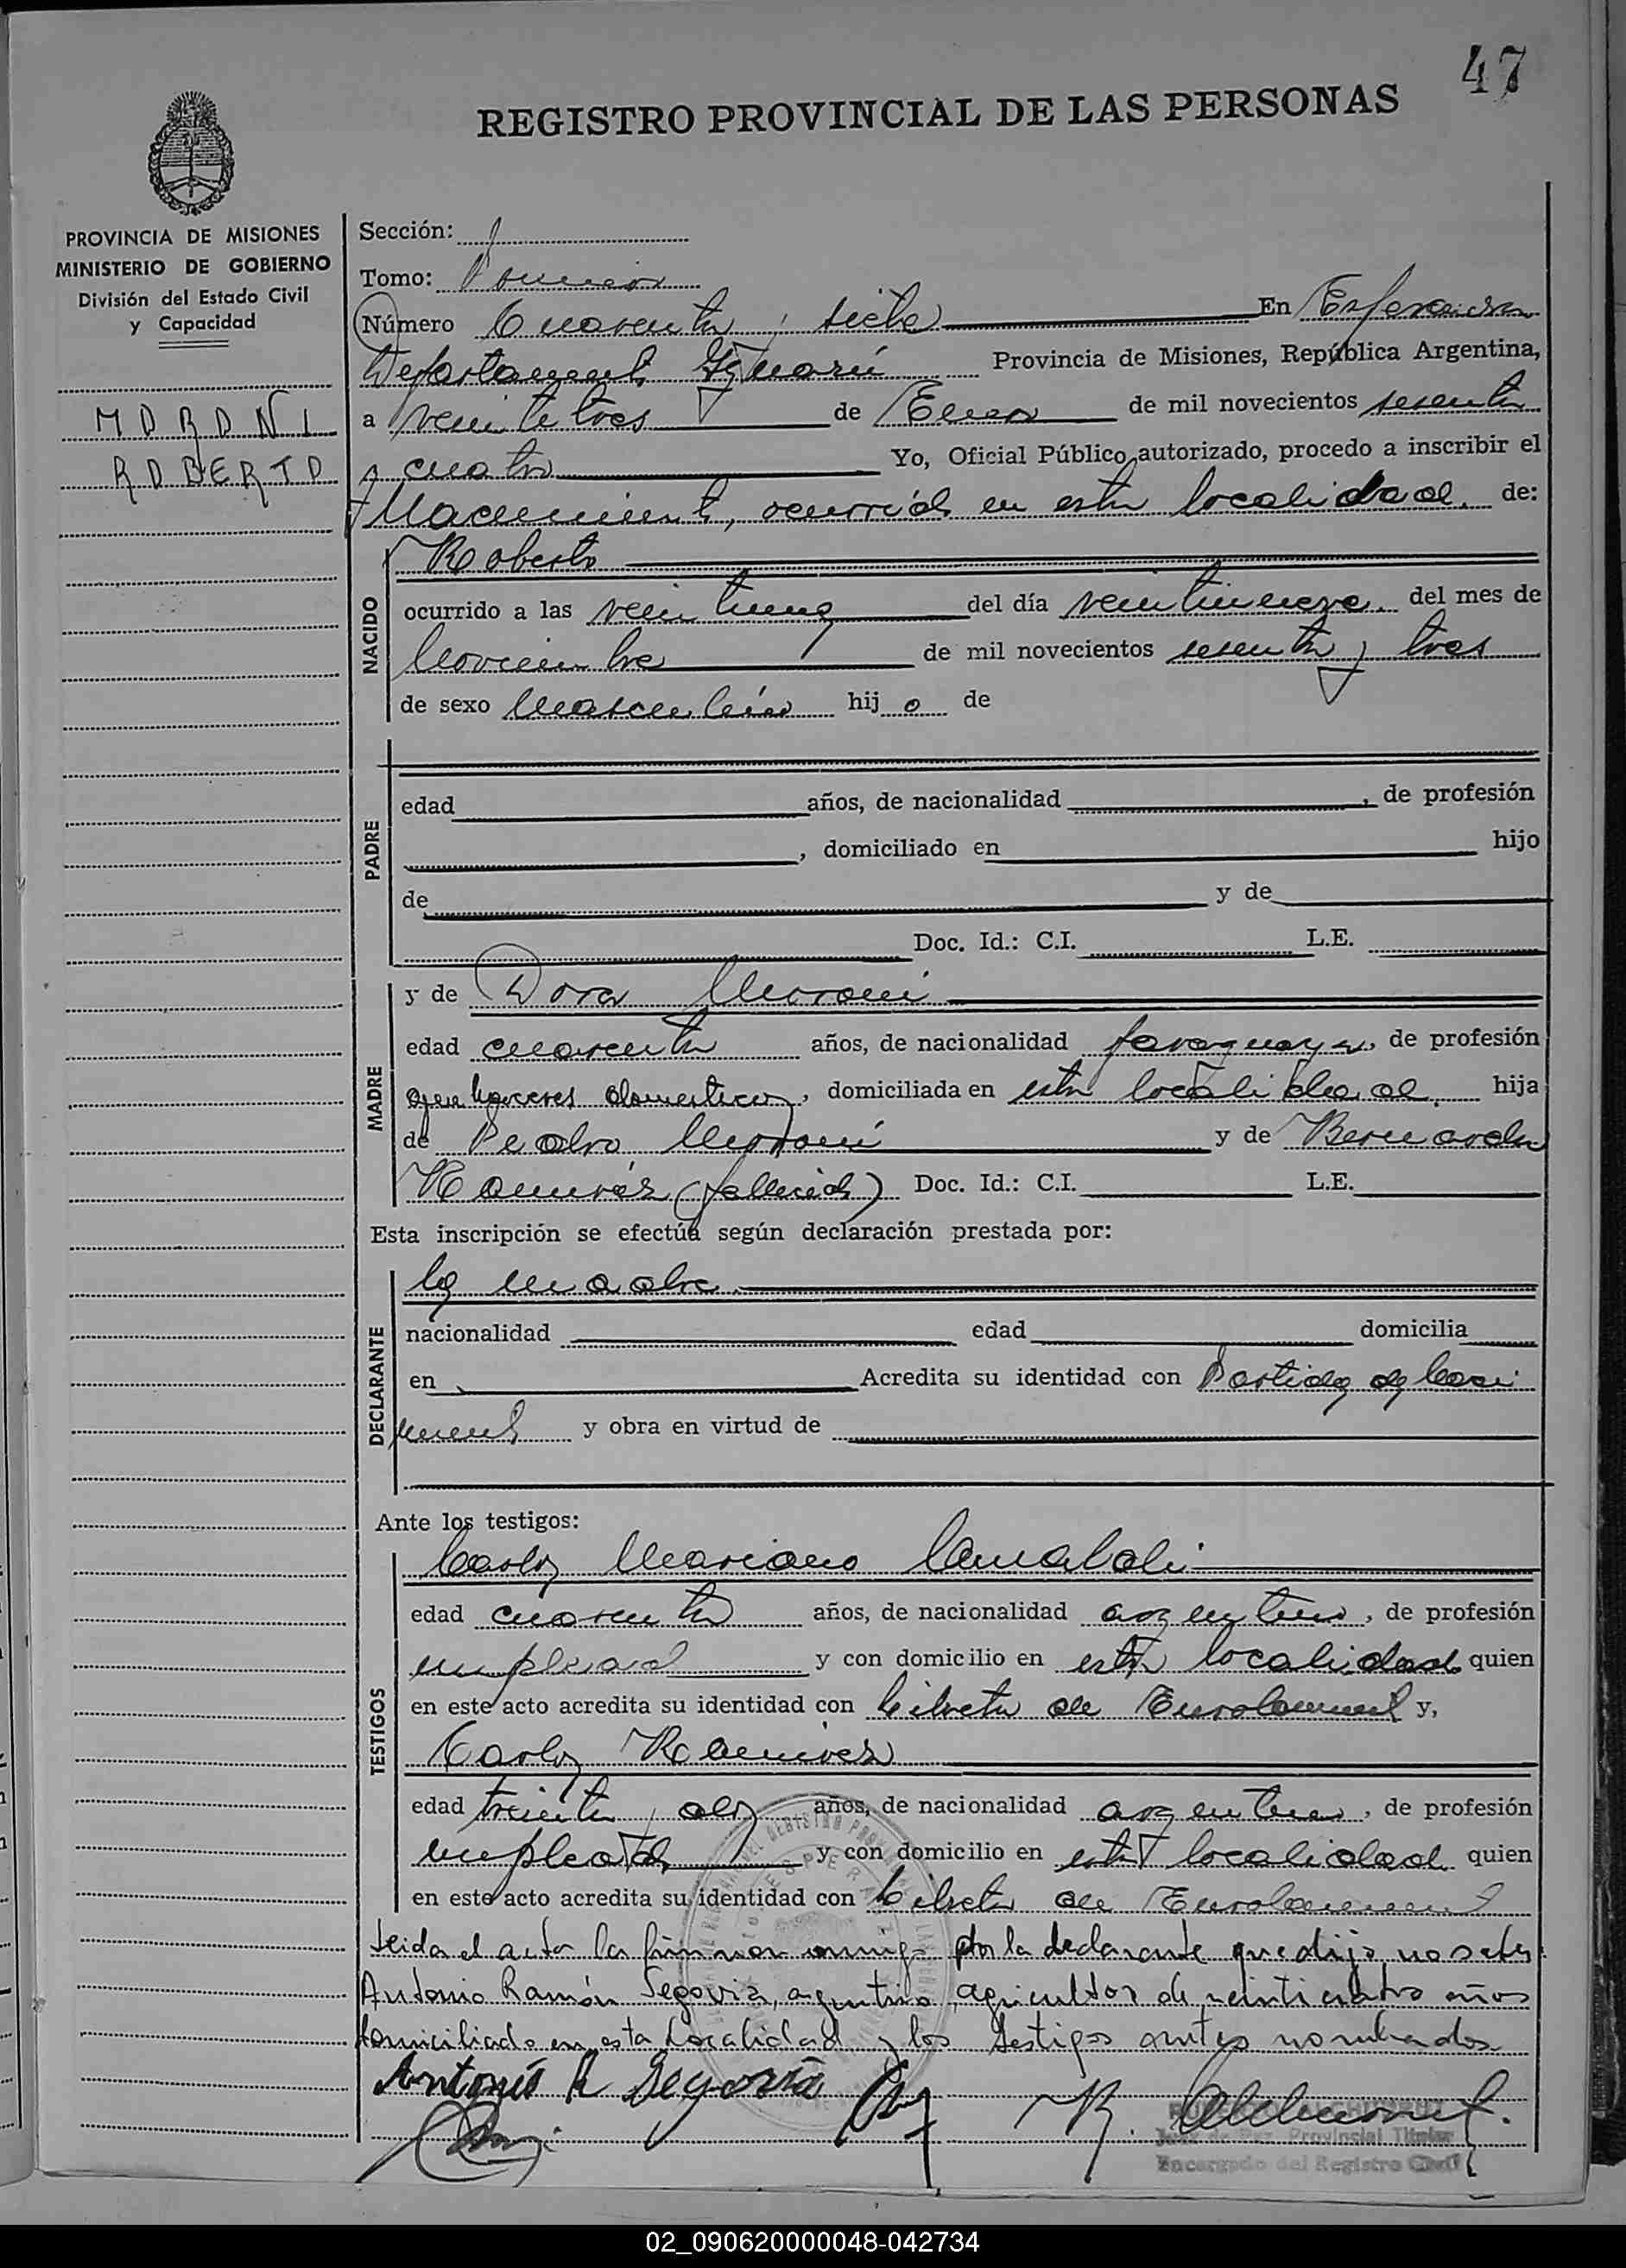 47
REGISTRO PROVINCIAL DE LAS PERSONAS
PROVINCIA DE MISIONES
MINISTERIO DE GOBIERNO
División del Estado Civil
y Capacidad
MORONI
ROBERTO
Sección: 1
Tomo: Primero
Número Cuarenta y siete En Esperanza
Departamento Iguazú Provincia de Misiones, República Argentina,
a veintitres de Enero de mil novecientos sesenta
y cuatro Yo, Oficial Público autorizado, procedo a inscribir el
Nacimiento, ocurrido en esta localidad. de:
NACIDO
Roberto
ocurrido a las veintiuna del día veintinueve. del mes de
Noviembre de mil novecientos sesenta y tres
de sexo Masculino hijo de
PADRE
edad años, de nacionalidad , de profesión
, domiciliado en hijo
de y de
Doc. Id.: C.I. L.E.
MADRE
y de Dora Moroni
edad cuarenta años, de nacionalidad paraguaya, de profesión
quehaceres domesticos, domiciliada en esta localidad. hija
de Pedro Moroni y de Bernarda
Ramírez (fallecida) Doc. Id.: C.I. L.E.
Esta inscripción se efectúa según declaración prestada por:
DECLARANTE
la madre.
nacionalidad edad domicilia
en Acredita su identidad con Partida de Naci
miento y obra en virtud de
Ante los testigos:
TESTIGOS
Carlos Mariano
edad cuarenta años, de nacionalidad argentino, de profesión
empleado y con domicilio en esta localidad quien
en este acto acredita su identidad con Libreta de Enrolamiento y,
Carlos Ramirez
edad treinta y dos años, de nacionalidad argentino, de profesión
empleado y con domicilio en esta localidad quien
en este acto acredita su identidad con Libreta de Enrolamiento
Leida el acta la firman conmigo por la declarante que dijo no saber
Antonio Ramón Segovia, argentino, agricultor de veinticuatro años
domiciliado en esta Localidad y los testigos antes nombrados
Antonio R Segovia
Juez de Paz Provincial Titular
Encargado del Registro Civil
02_090620000048-042734